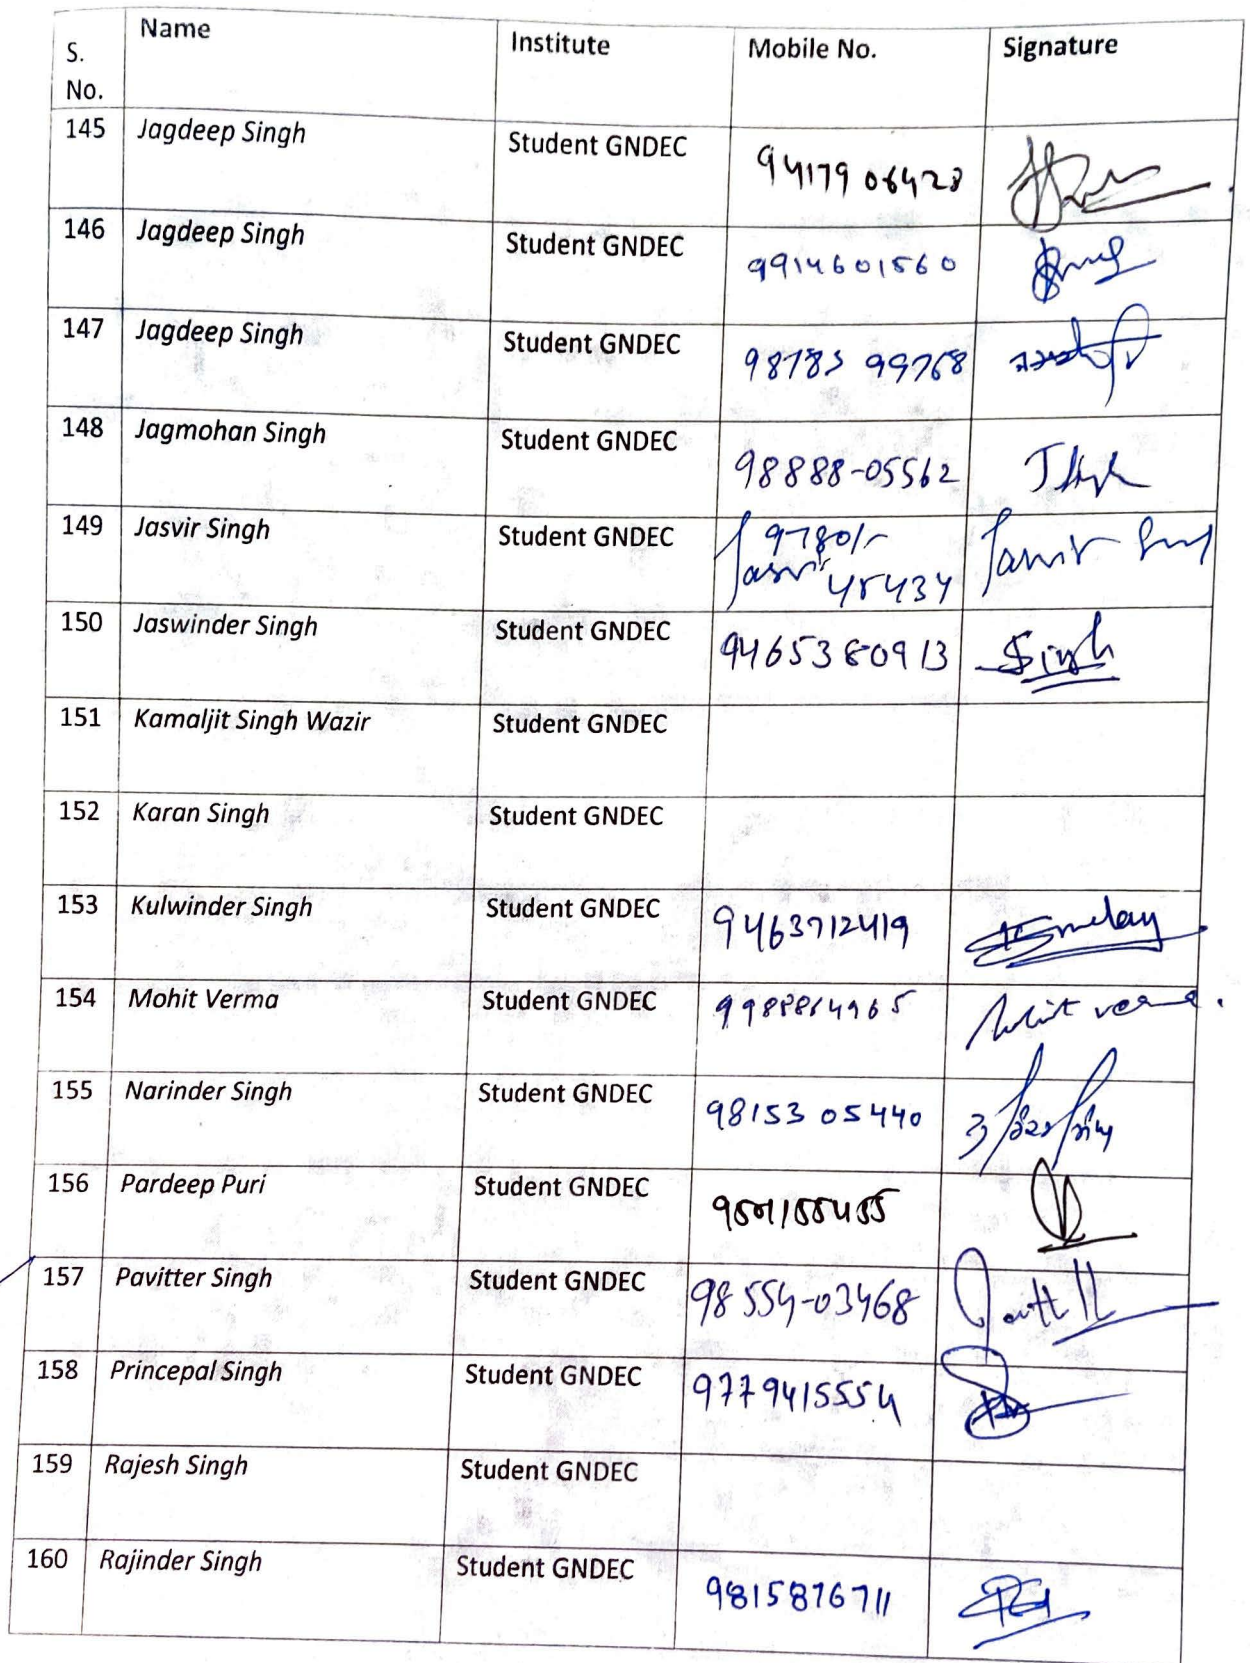 S. No. Name Institute Mobile No. Signature
145 Jagdeep Singh Student GNDEC 94179 06428
146 Jagdeep Singh Student GNDEC 9914601560
147 Jagdeep Singh Student GNDEC 99768
148 Jagmohan Singh Student GNDEC 98888-05562
149 Jasvir Singh Student GNDEC
150 Jaswinder Singh Student GNDEC Singh
151 Kamaljit Singh Wazir Student GNDEC
152 Karan Singh Student GNDEC
153 Kulwinder Singh Student GNDEC 9463712419
154 Mohit Verma Student GNDEC
155 Narinder Singh Student GNDEC 98153 05440
156 Pardeep Puri Student GNDEC
157 Pavitter Singh Student GNDEC 98554-03468
158 Princepal Singh Student GNDEC 9779415554
159 Rajesh Singh Student GNDEC
160 Rajinder Singh Student GNDEC 9815876711